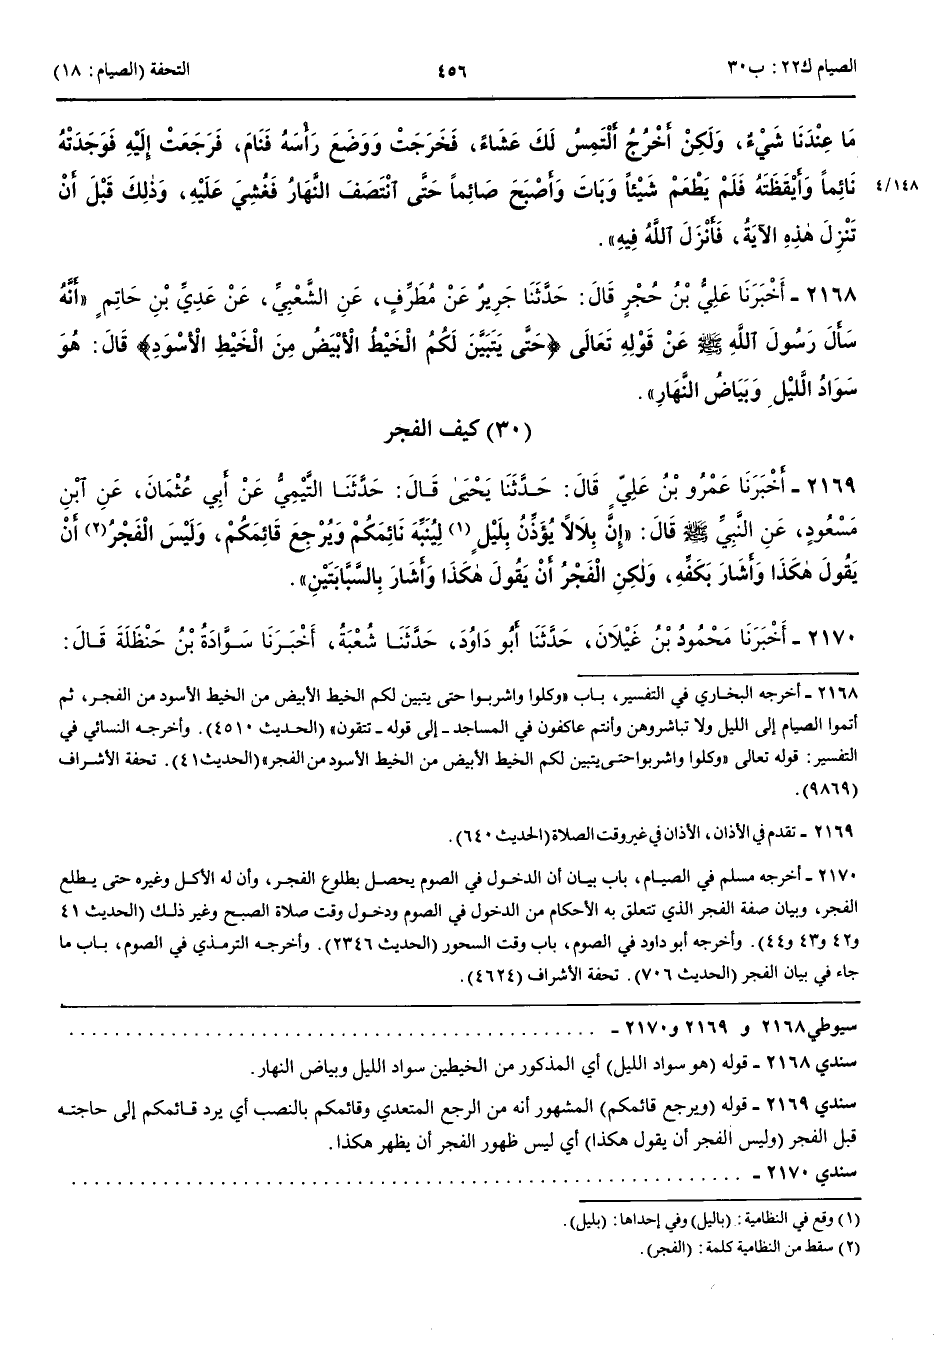 الصيام ك٢٢: ب٣٠
٤٥٦
التحفة (الصيام: ١٨)
مَا عِنْدَنَا شَيْءٌ، وَلَكِنْ أَخْرُجُ أَلْتَمِسُ لَكَ عَشَاءً، فَخَرَجَتْ وَوَضَعَ رَأْسَهُ فَنَامَ، فَرَجَعَتْ إِلَيْهِ فَوَجَدَتْهُ
٤/١٤٨ نَائِماً وَأَيْقَظَتْهُ فَلَمْ يَطْعَمْ شَيْئاً وَبَاتَ وَأَصْبَحَ صَائِماً حَتَّى ٱنْتَصَفَ النَّهَارُ فَغُشِيَ عَلَيْهِ، وَذٰلِكَ قَبْلَ أَنْ
تَنْزِلَ هٰذِهِ الآيَةُ، فَأَنْزَلَ ٱللَّهُ فِيهِ».
٢١٦٨ ـ أَخْبَرَنَا عَلِيُّ بْنُ حُجْرٍ قَالَ: حَدَّثَنَا جَرِيرٌ عَنْ مُطَرِّفٍ، عَنِ الشَّعْبِيِّ، عَنْ عَدِيِّ بْنِ حَاتِمٍ «أَنَّهُ
سَأَلَ رَسُولَ ٱللَّهِ ﷺ عَنْ قَوْلِهِ تَعَالَى ﴿حَتَّى يَتَبَيَّنَ لَكُمُ الْخَيْطُ الْأَبْيَضُ مِنَ الْخَيْطِ الْأَسْوَدِ﴾ قَالَ: هُوَ
سَوَادُ الَّليْلِ وَبَيَاضُ النَّهَارِ».
(٣٠) كيف الفجر
٢١٦٩ ـ أَخْبَرَنَا عَمْرُو بْنُ عَلِيٍّ قَالَ: حَدَّثَنَا يَحْيَىٰ قَالَ: حَدَّثَنَا التَّيْمِيُّ عَنْ أَبِي عُثْمَانَ، عَنِ ٱبْنِ
مَسْعُودٍ، عَنِ النَّبِيِّ ﷺ قَالَ: «إِنَّ بِلَالاً يُؤَذِّنُ بِلَيْلٍ (١) لِيُنَبِّهَ نَائِمَكُمْ وَيُرْجِعَ قَائِمَكُمْ، وَلَيْسَ الْفَجْرُ(٢) أَنْ
يَقُولَ هٰكَذَا وَأَشَارَ بِكَفِّهِ، وَلٰكِنِ الْفَجْرُ أَنْ يَقُولَ هٰكَذَا وَأَشَارَ بِالسَّبَّابَتَيْنِ».
٢١٧٠ ـ أَخْبَرَنَا مَحْمُودُ بْنُ غَيْلَانَ، حَدَّثَنَا أَبُو دَاوُدَ، حَدَّثَنَا شُعْبَةُ، أَخْبَرَنَا سَوَّادَةُ بْنُ حَنْظَلَةَ قَالَ:
٢١٦٨ ـ أخرجه البخاري في التفسير، باب «وكلوا واشربوا حتى يتبين لكم الخيط الأبيض من الخيط الأسود من الفجر، ثم
أتموا الصيام إلى الليل ولا تباشروهن وأنتم عاكفون في المساجد ـ إلى قوله ـ تتقون» (الحديث ٤٥١٠). وأخرجه النسائي في
التفسير: قوله تعالى «وكلوا واشربوا حتى يتبين لكم الخيط الأبيض من الخيط الأسود من الفجر» (الحديث ٤١). تحفة الأشراف
(٩٨٦٩).
٢١٦٩ ـ تقدم في الأذان، الأذان في غير وقت الصلاة (الحديث ٦٤٠).
٢١٧٠ ـ أخرجه مسلم في الصيام، باب بيان أن الدخول في الصوم يحصل بطلوع الفجر، وأن له الأكل وغيره حتى يطلع
الفجر، وبيان صفة الفجر الذي تتعلق به الأحكام من الدخول في الصوم ودخول وقت صلاة الصبح وغير ذلك (الحديث ٤١
و٤٢ و٤٣ و٤٤). وأخرجه أبو داود في الصوم، باب وقت السحور (الحديث ٢٣٤٦). وأخرجه الترمذي في الصوم، باب ما
جاء في بيان الفجر (الحديث ٧٠٦). تحفة الأشراف (٤٦٢٤).
سيوطي ٢١٦٨ و ٢١٦٩ و٢١٧٠ ـ . . . . . . . . . . . . . . . . . . . . . . . . . . . . . .
سندي ٢١٦٨ ـ قوله (هو سواد الليل) أي المذكور من الخيطين سواد الليل وبياض النهار.
سندي ٢١٦٩ ـ قوله (ويرجع قائمكم) المشهور أنه من الرجع المتعدي وقائمكم بالنصب أي يرد قائمكم إلى حاجته
قبل الفجر (وليس الفجر أن يقول هكذا) أي ليس ظهور الفجر أن يظهر هكذا.
سندي ٢١٧٠ ـ . . . . . . . . . . . . . . . . . . . . . . . . . . . . . .
(١) وقع في النظامية: (باليل) وفي إحداها: (بليل).
(٢) سقط من النظامية كلمة: (الفجر).